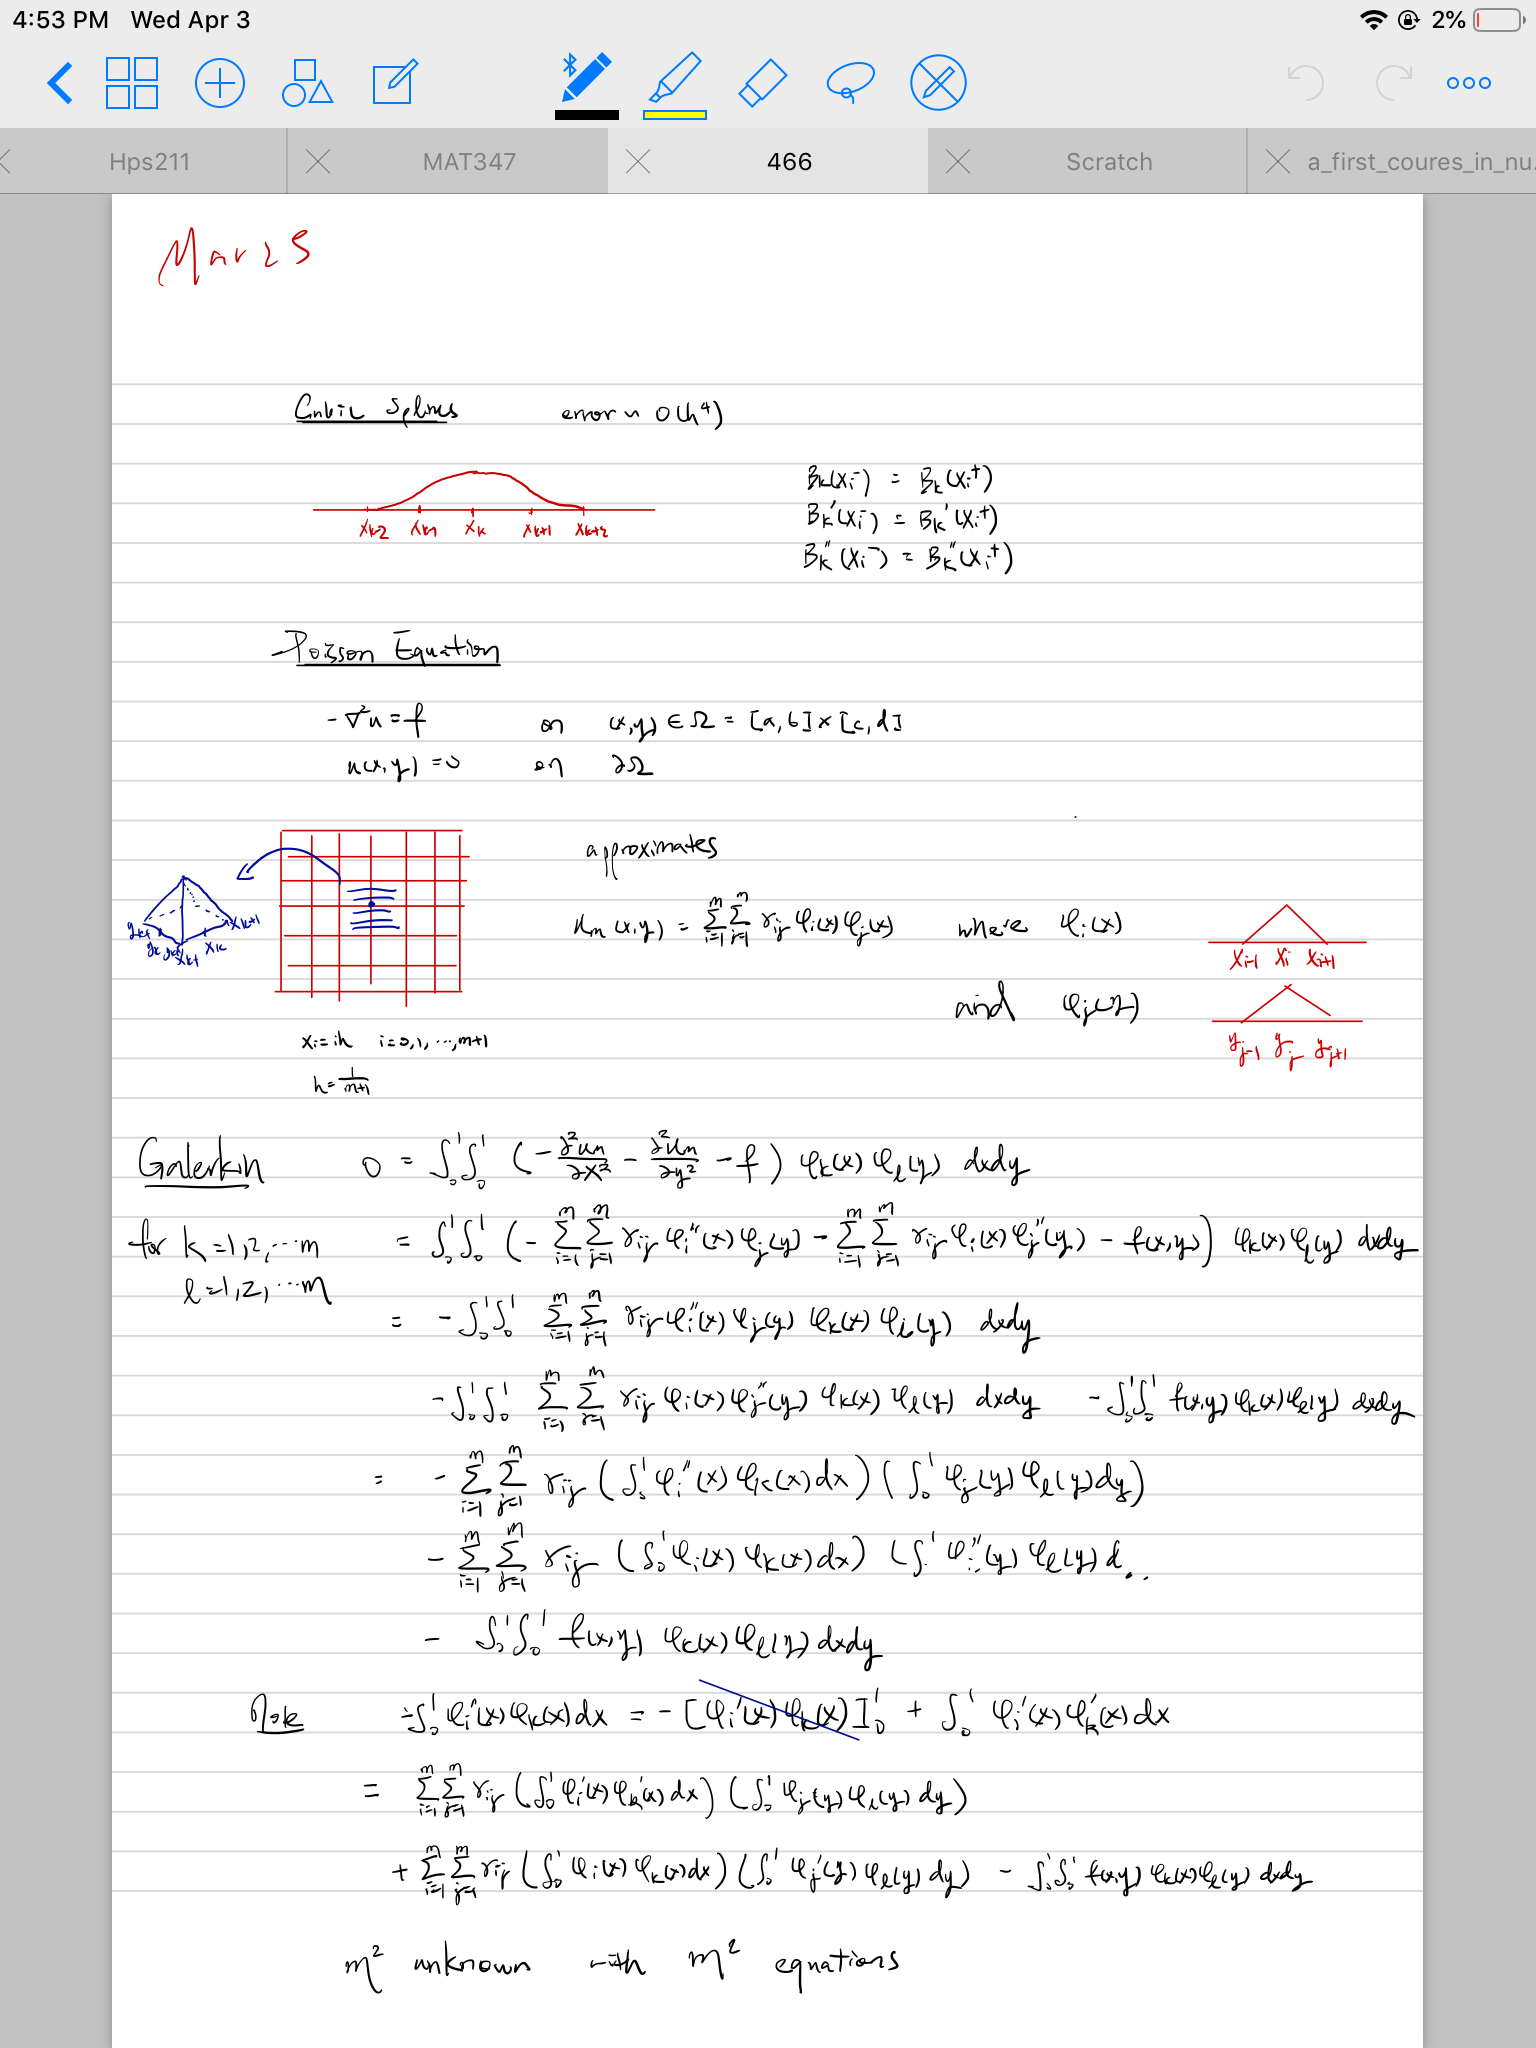 4:53 PM Wed Apr 3 2%
Hps211 MAT347 466 Scratch a_first_coures_in_nu.
Mar 25
Cubic Splines error ~ O(h⁴)
x_{k-2} x_{k-1} x_k x_{k+1} x_{k+2}
B_k(x_i⁻) = B_k(x_i⁺)
B_k'(x_i⁻) = B_k'(x_i⁺)
B_k''(x_i⁻) = B_k''(x_i⁺)
Poisson Equation
-∇²u = f on (x,y) ∈ Ω = [a,b] × [c,d]
u(x,y) = 0 on ∂Ω
approximates
u_m(x,y) = Σ_{i=1}^m Σ_{j=1}^m γ_ij φ_i(x) φ_j(x) where φ_i(x)
x_{i-1} x_i x_{i+1}
and φ_j(y)
y_{j-1} y_j y_{j+1}
x_{k+1}
x_k
x_i = ih i=0,1,…,m+1
h = 1/(m+1)
Galerkin 0 = ∫₀¹∫₀¹ (-∂²u_m/∂x² - ∂²u_m/∂y² - f) φ_k(x) φ_ℓ(y) dxdy
for k=1,2,…m = ∫₀¹∫₀¹ (-Σ_{i=1}^m Σ_{j=1}^m γ_ij φ_i''(x) φ_j(y) - Σ_{i=1}^m Σ_{j=1}^m γ_ij φ_i(x) φ_j''(y) - f(x,y)) φ_k(x) φ_ℓ(y) dxdy
ℓ=1,2,…m
= -∫₀¹∫₀¹ Σ_{i=1}^m Σ_{j=1}^m γ_ij φ_i''(x) φ_j(y) φ_k(x) φ_ℓ(y) dxdy
-∫₀¹∫₀¹ Σ_{i=1}^m Σ_{j=1}^m γ_ij φ_i(x) φ_j''(y) φ_k(x) φ_ℓ(y) dxdy -∫₀¹∫₀¹ f(x,y) φ_k(x) φ_ℓ(y) dxdy
= -Σ_{i=1}^m Σ_{j=1}^m γ_ij (∫₀¹ φ_i''(x) φ_k(x) dx) (∫₀¹ φ_j(y) φ_ℓ(y) dy)
-Σ_{i=1}^m Σ_{j=1}^m γ_ij (∫₀¹ φ_i(x) φ_k(x) dx) (∫ ¹ φ_i''(y) φ_ℓ(y) d..
- ∫₀¹∫₀¹ f(x,y) φ_k(x) φ_ℓ(y) dxdy
Note -∫₀¹ φ_i''(x) φ_k(x) dx = -[φ_i'(x) φ_k(x)]₀¹ + ∫₀¹ φ_i'(x) φ_k'(x) dx
= Σ_{i=1}^m Σ_{j=1}^m γ_ij (∫₀¹ φ_i'(x) φ_k'(x) dx) (∫₀¹ φ_j(y) φ_ℓ(y) dy)
+ Σ_{i=1}^m Σ_{j=1}^m γ_ij (∫₀¹ φ_i(x) φ_k(x) dx) (∫₀¹ φ_j'(y) φ_ℓ(y) dy) - ∫₀¹∫₀¹ f(x,y) φ_k(x) φ_ℓ(y) dxdy
m² unknown with m² equations